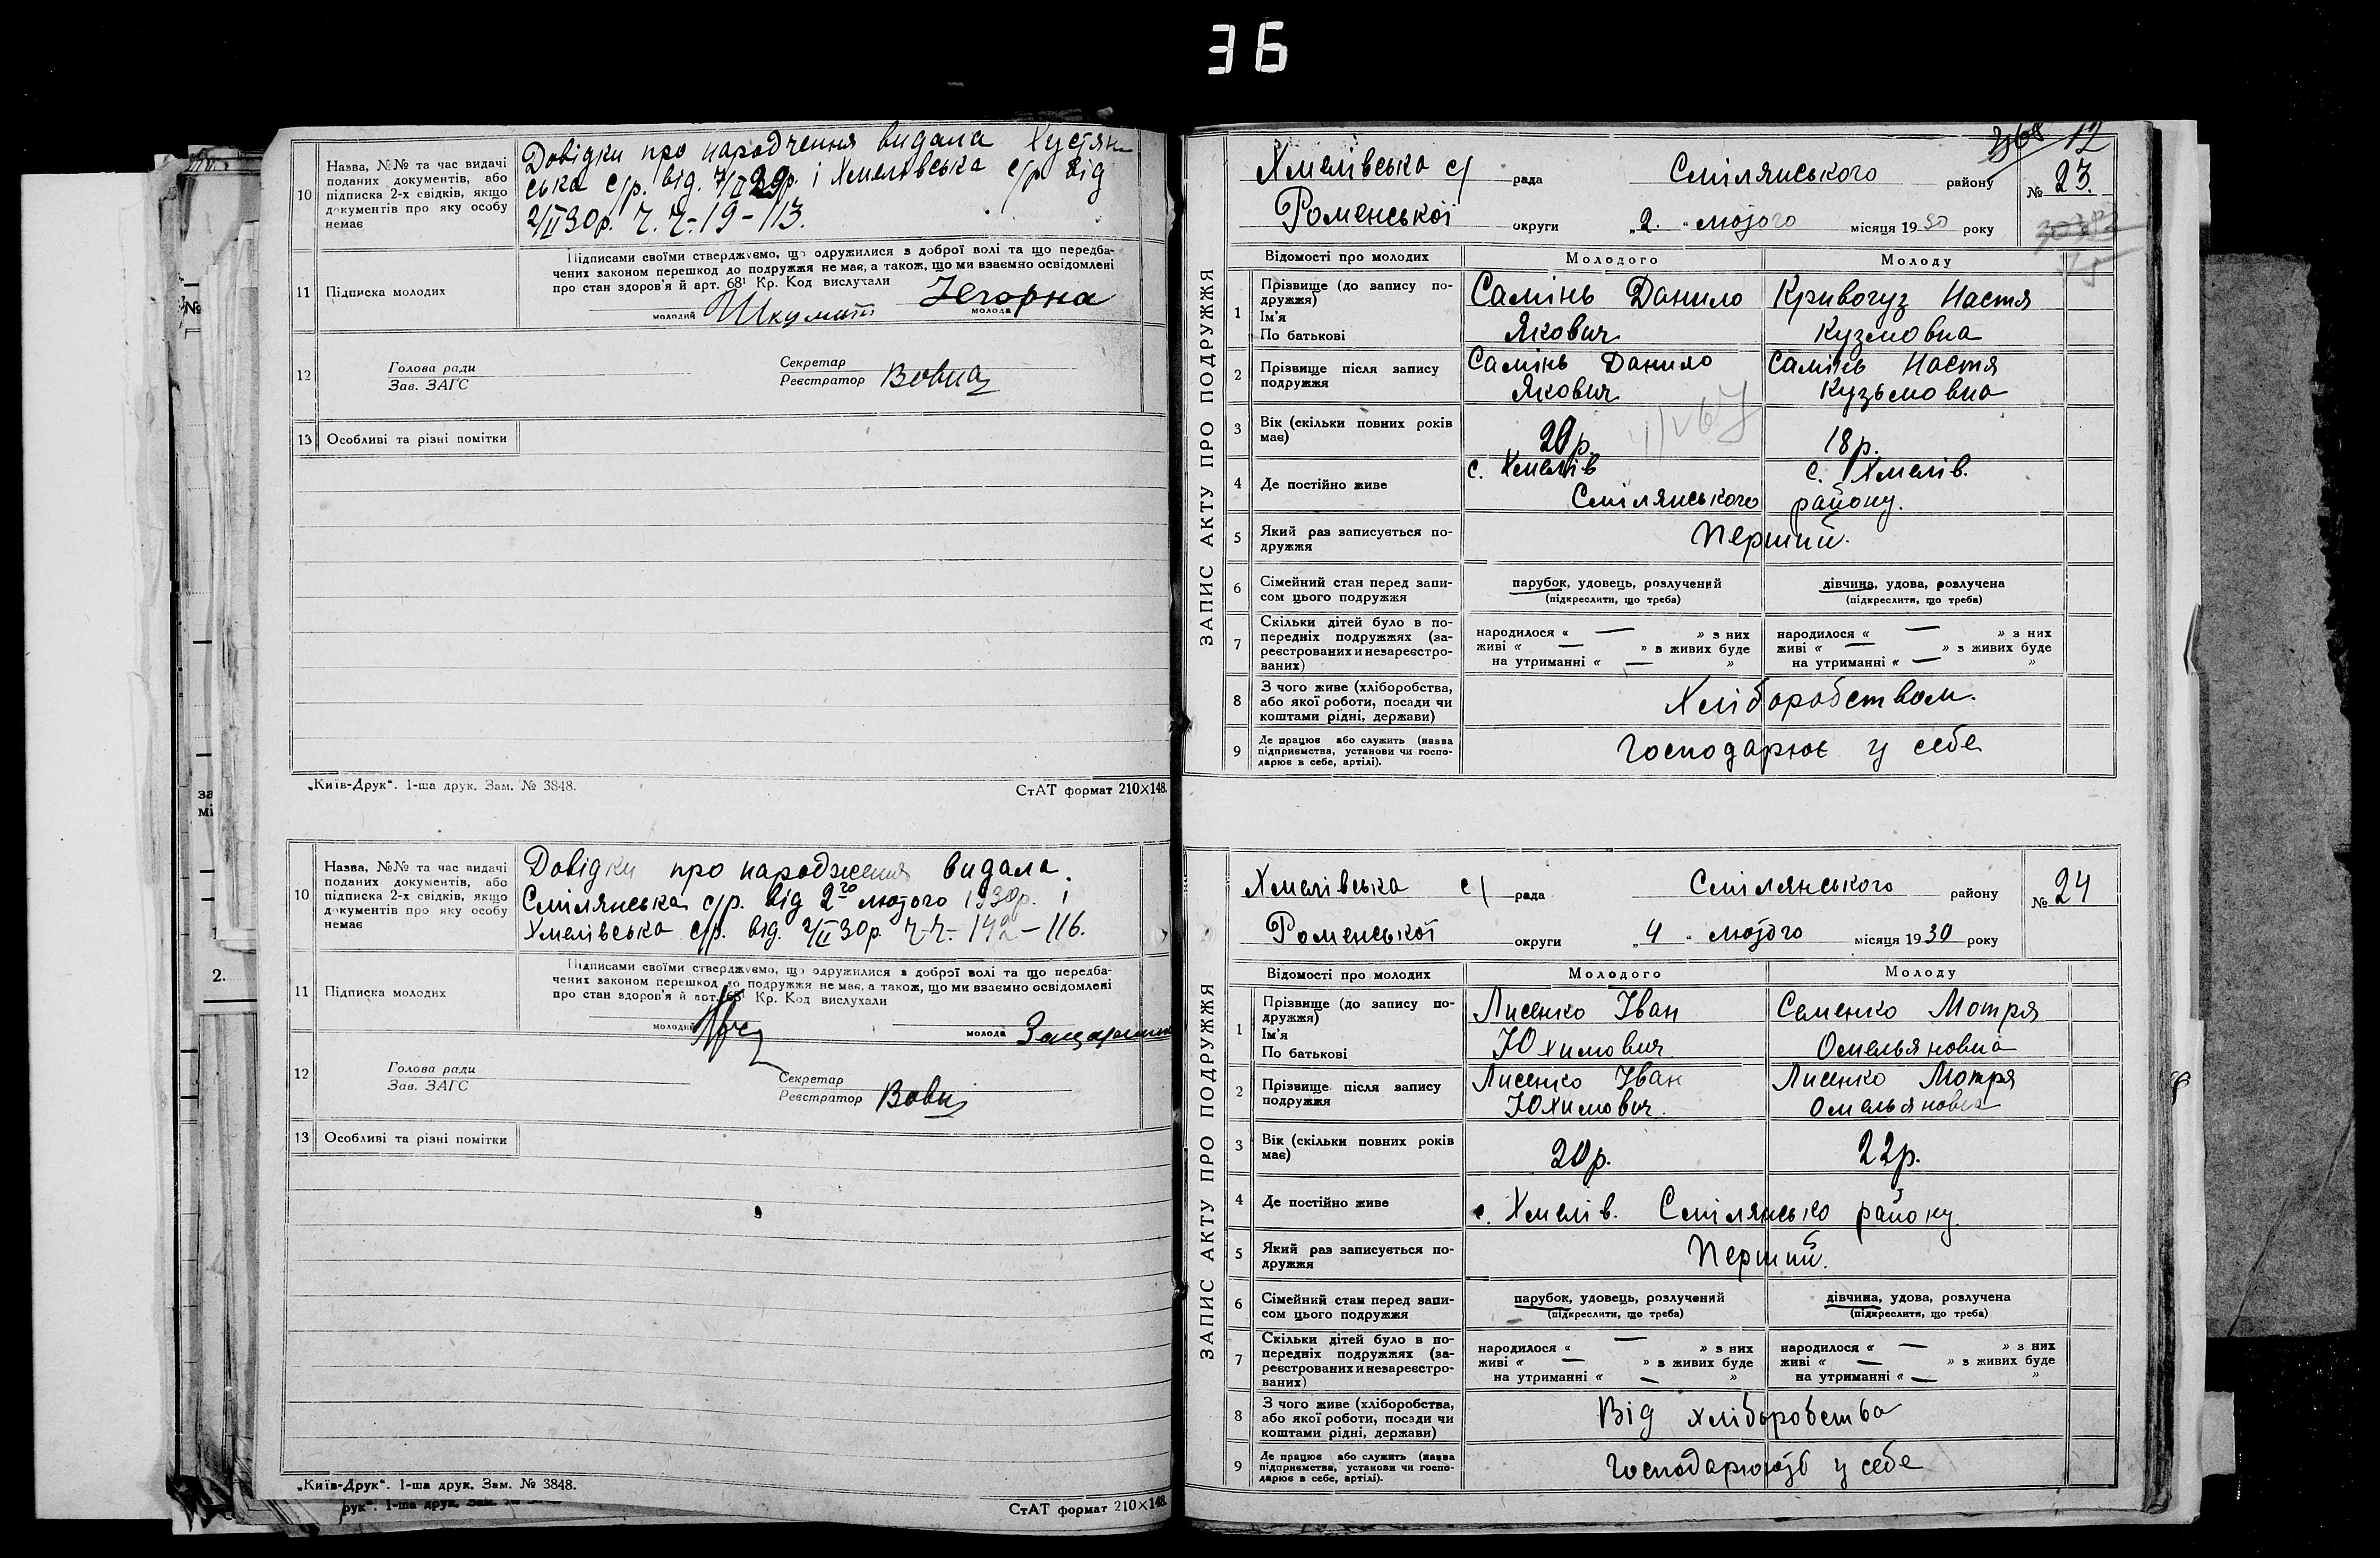 36
10
Назва, №№ та час видачі
поданих документів, або
підписка 2-х свідків, якщо
документів про яку особу
немає
Довідки про народчення видала Хустян-
ська с/р. від. 7/II 29р. і Хмелівська с/р від
2/II 30р. ч. ч.- 19 - 113.
11
Підписка молодих
Підписами своїми стверджуємо, що одружилися з доброї волі та що передба-
чених законом перешкод до подружжя не має, а також, що ми взаємно освідомлені
про стан здоров'я й арт. 68¹ Кр. Код вислухали
молодий
молода
12
Голова ради
Зав. ЗАГС
Секретар
Реєстратор Вовна
13
Особливі та різні помітки
„Київ-Друк“. 1-ша друк. Зам. № 3848.
СтАТ формат 210×148.
10
Назва, №№ та час видачі
поданих документів, або
підписка 2-х свідків, якщо
документів про яку особу
немає
Довідки про народження видала.
Смілянська с/р. від 2го лютого 1930р. і
Хмелівська с/р. від. 2/II 30р. ч-ч.- 142 - 116.
11
Підписка молодих
Підписами своїми стверджуємо, що одружилися з доброї волі та що передба-
чених законом перешкод до подружжя не має, а також, що ми взаємно освідомлені
про стан здоров'я й арт. 68¹ Кр. Код вислухали
молодий
молода
12
Голова ради
Зав. ЗАГС
Секретар
Реєстратор Вовн
13
Особливі та різні помітки
„Київ-Друк“. 1-ша друк. Зам. № 3848.
СтАТ формат 210×148.
12
Хмелівська с/ рада Смілянського району № 23.
Роменської округи „2.“ лютого місяця 1930 року
ЗАПИС АКТУ ПРО ПОДРУЖЖЯ
Відомості про молодих
Молодого
Молоду
1
Прізвище (до запису по-
дружжя)
Ім'я
По батькові
Самінь Данило
Якович
Кривогуз Настя
Кузмовна
2
Прізвище після запису
подружжя
Самінь Данило
Якович
Самінь Настя
Кузьмовна
3
Вік (скільки повних років
має)
20р.
18р.
4
Де постійно живе
с. Хмелів
с. Хмелів.
Смілянського району.
5
Який раз записується по-
дружжя
Перший.
6
Сімейний стан перед запи-
сом цього подружжя
парубок, удовець, розлучений
(підкреслити, що треба)
дівчина, удова, розлучена
(підкреслити, що треба)
7
Скільки дітей було в по-
передніх подружжях (за-
реєстрованих и незареєстро-
ваних)
народилося « — » з них
живі « — » в живих буде
на утриманні « — »
народилося « — » з них
живі « — » в живих буде
на утриманні « — »
8
З чого живе (хліборобства,
або якої роботи, посади чи
коштами рідні, держави)
Хліборобством.
9
Де працює або служить (назва
підприємства, установи чи госпо-
дарює в себе, артілі).
Господарює у себе
Хмелівська с/ рада Смілянського району № 24
Роменської округи „4“ лютого місяця 1930 року
ЗАПИС АКТУ ПРО ПОДРУЖЖЯ
Відомості про молодих
Молодого
Молоду
1
Прізвище (до запису по-
дружжя)
Ім'я
По батькові
Лисенко Іван
Юхимович
Семенко Мотря
Омельяновна
2
Прізвище після запису
подружжя
Лисенко Іван
Юхимович.
Лисенко Мотря
Омельяновна
3
Вік (скільки повних років
має)
20р.
22р.
4
Де постійно живе
с. Хмелів. Смілянсько району.
5
Який раз записується по-
дружжя
Перший.
6
Сімейний стан перед запи-
сом цього подружжя
парубок, удовець, розлучений
(підкреслити, що треба)
дівчина, удова, розлучена
(підкреслити, що треба)
7
Скільки дітей було в по-
передніх подружжях (за-
реєстрованих и незареєстро-
ваних)
народилося « — » з них
живі « — » в живих буде
на утриманні « — »
народилося « — » з них
живі « — » в живих буде
на утриманні « — »
8
З чого живе (хліборобства,
або якої роботи, посади чи
коштами рідні, держави)
Від хліборобства
9
Де працює або служить (назва
підприємства, установи чи госпо-
дарює в себе, артілі).
Господарюють у себе